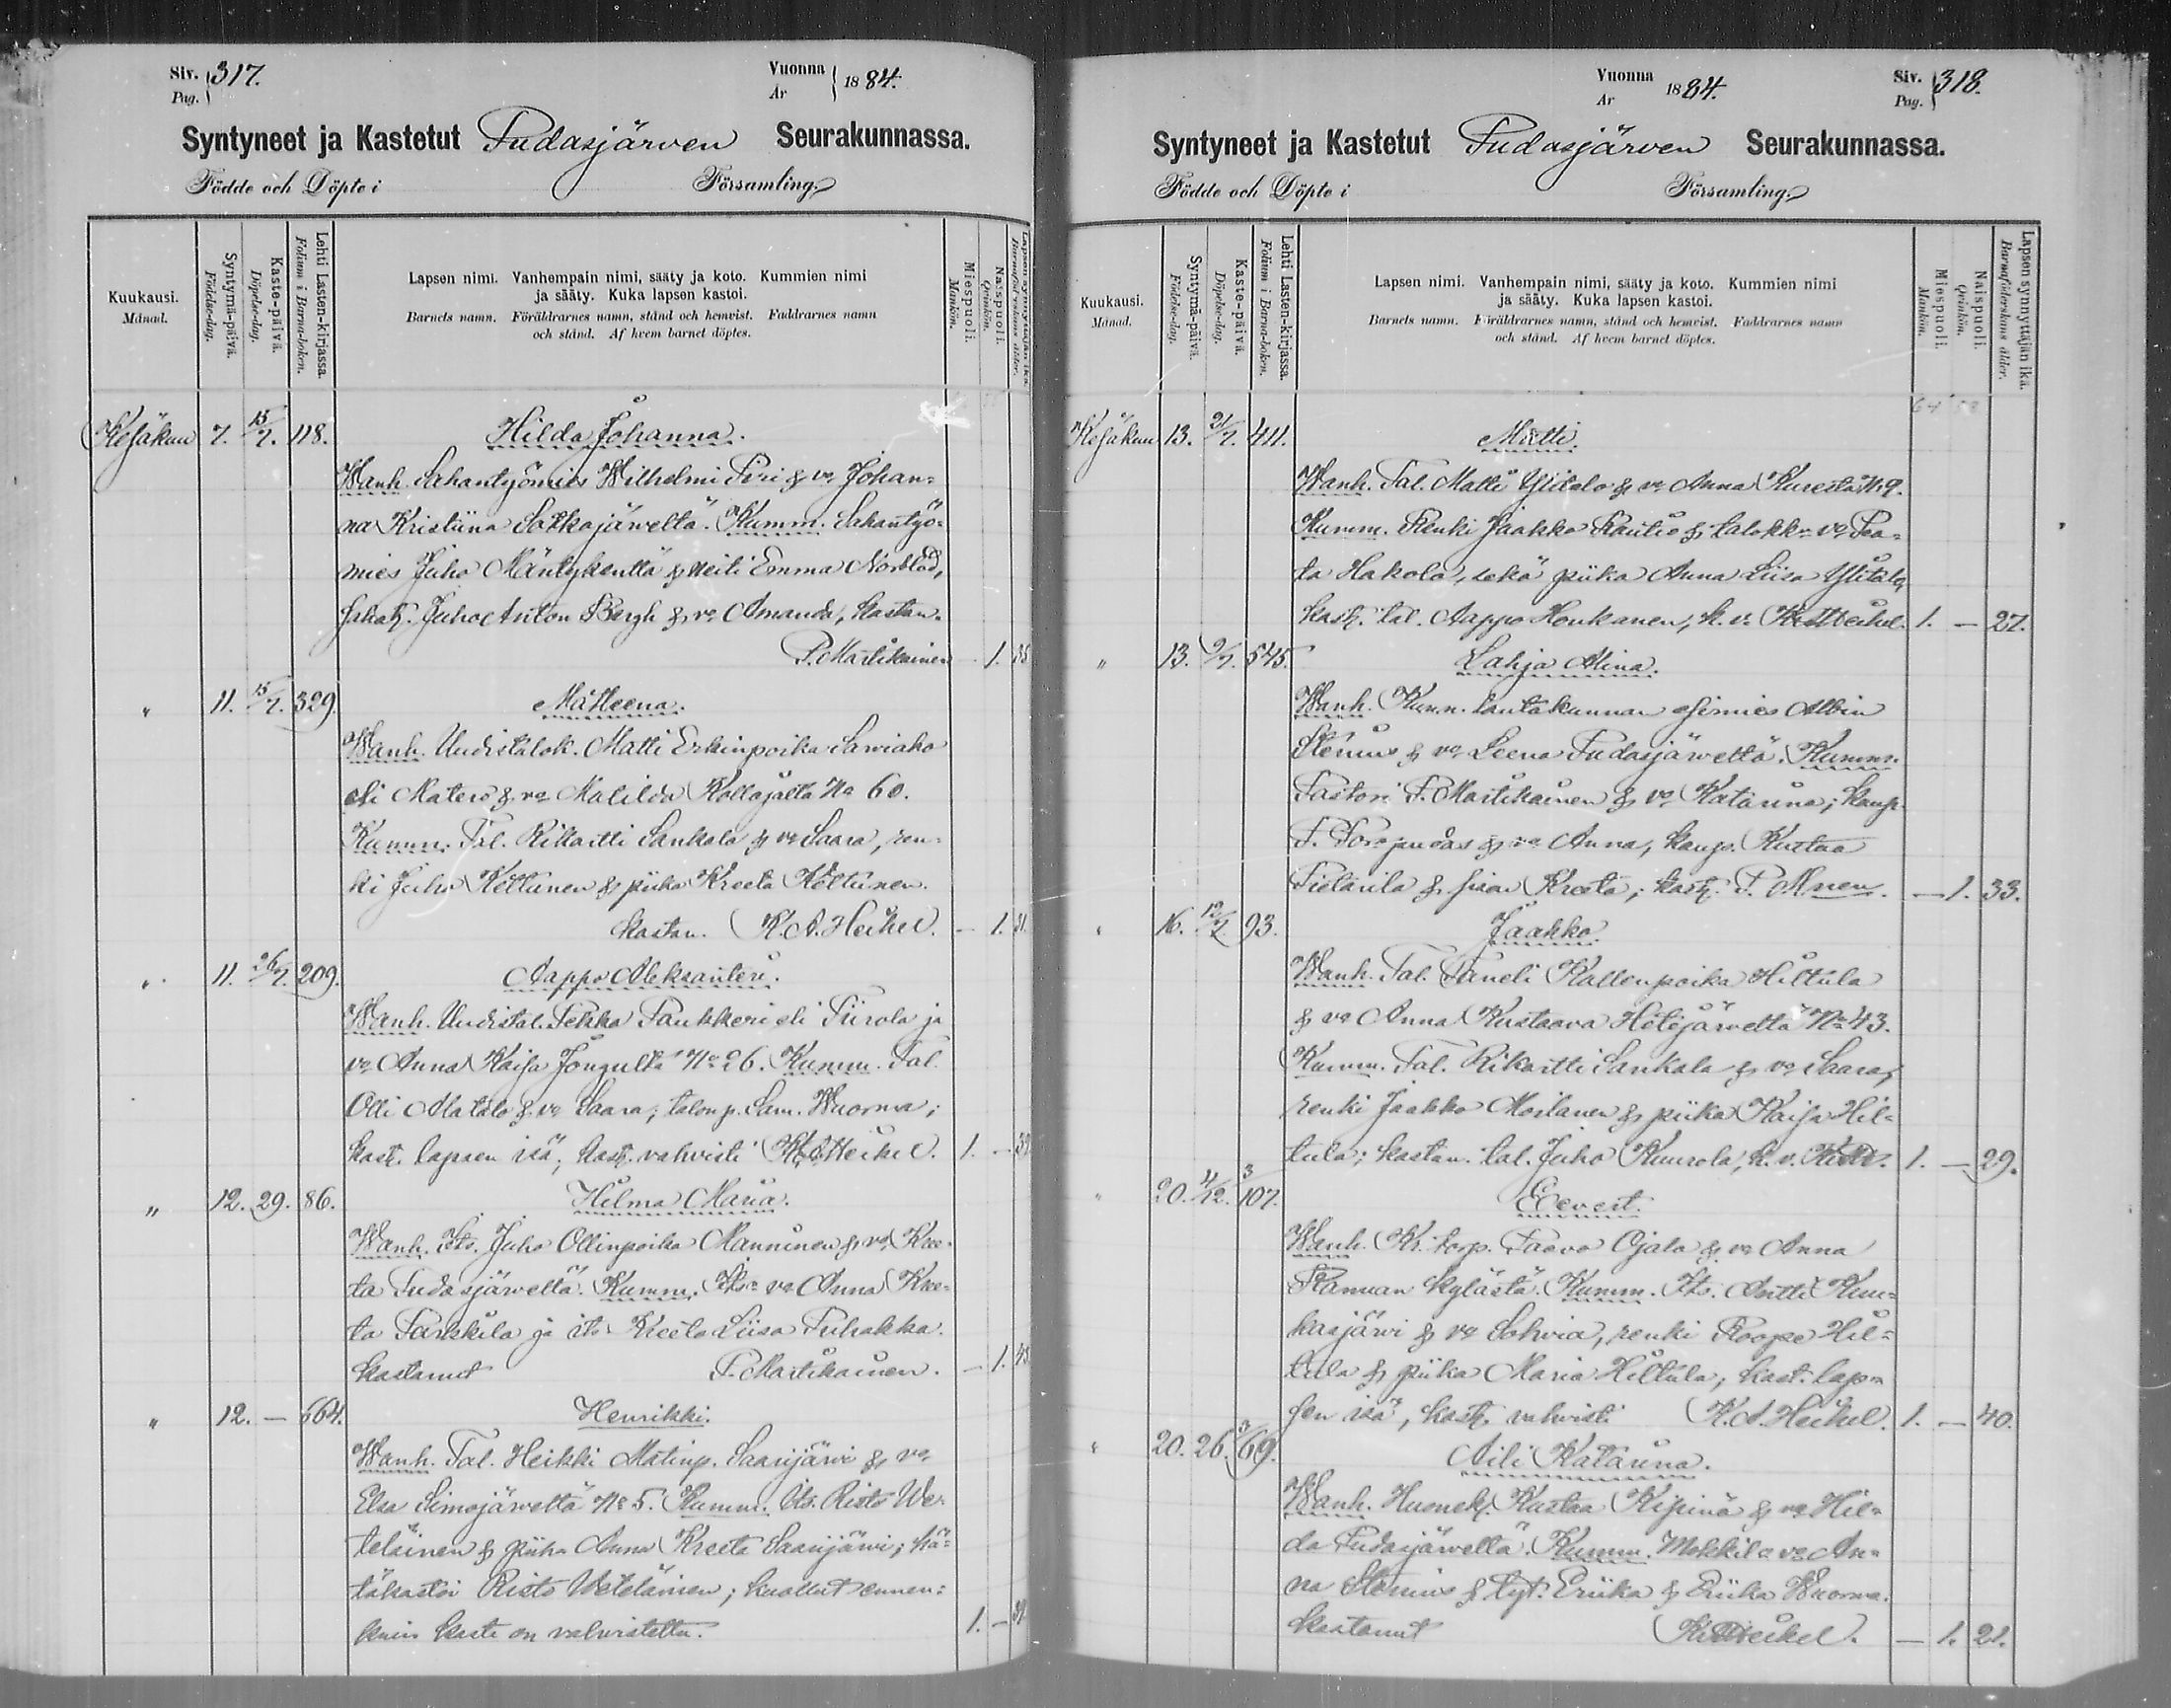 Siv. 317.
Pag.
Vuonna 1884.
År
Syntyneet ja Kastetut Pudasjärven Seurakunnassa.
Födde och Döpte i Församling.
Kuukausi.
Månad.
Syntymä-päivä.
Födelse-dag.
Kaste-päivä.
Döpelse-dag.
Lehti Lasten-kirjassa.
Folium i Barna-boken.
Lapsen nimi. Vanhempain nimi, sääty ja koto. Kummien nimi
ja sääty. Kuka lapsen kastoi.
Barnets namn. Föräldrarnes namn, stånd och hemvist. Faddrarnes namn
och stånd. Af hvem barnet döptes.
Miespuoli.
Mankön.
Naispuoli.
Qvinkön.
Lapsen synnyttäjän ikä.
Barnaföderskans ålder.
Kesäkuu 7. 15/7. 118. Hilda Johanna.
Wanh. Sahantyömies Wilhelmi Piri & vo Johan=
na Kristiina Sotkajärveltä. Kumm. Sahantyö=
mies Juho Mäntykenttä & neiti Emma Norblad,
sahat. Juho Anton Bergh & vo Amanda, kastan.
P. Martikainen 1. 35
" 11. 15/7. 329. Matleena.
Wanh. Uudistalok. Matti Erkinpoika Sarviaho
eli Matero & vo Matilda Kollajalta No 60.
Kumm. Tal. Rikartti Sankala & vo Saara, ren=
ki Juho Kettunen & piika Kreeta Kettunen.
kastan. K. A. Heikel. — 1. 31.
" 11. 26/7. 209. Aappo Aleksanteri.
Wanh. Uudistal. Pekka Paukkeri eli Piirola ja
vo Anna Kaisa Jongulta No 26. Kumm. Tal.
Olli Matalo & vo Saara; talonp. Sam. Wuorma;
kast. lapsen isä; kast. vahvisti K. A. Heikel. 1. — 32
" 12. 29. 86. Hilma Maria.
Wanh. Its. Juho Ollinpoika Manninen & vo Kree=
ta Pudasjärveltä. Kumm. Its. vo Anna Kree=
ta Parkkila ja its. Kreeta Liisa Puhakka.
kastanut P. Martikainen. — 1. 43
" 12. — 664. Henrikki.
Wanh. Tal. Heikki Matinp. Saarijärvi & vo
Elsa Simojärveltä No 5. Kumm. Its. Risto We=
teläinen & piika Anna Kreeta Saarijärvi; hä=
täkastoi Risto Weteläinen; kuollut ennen=
kuin kaste on vahvistettu. 1. — 39.
Vuonna 1884.
År
Siv. 318.
Pag.
Syntyneet ja Kastetut Pudasjärven Seurakunnassa.
Födde och Döpte i Församling.
Kuukausi.
Månad.
Syntymä-päivä.
Födelse-dag.
Kaste-päivä.
Döpelse-dag.
Lehti Lasten-kirjassa.
Folium i Barna-boken.
Lapsen nimi. Vanhempain nimi, sääty ja koto. Kummien nimi
ja sääty. Kuka lapsen kastoi.
Barnets namn. Föräldrarnes namn, stånd och hemvist. Faddrarnes namn
och stånd. Af hvem barnet döptes.
Miespuoli.
Mankön.
Naispuoli.
Qvinkön.
Lapsen synnyttäjän ikä.
Barnaföderskans ålder.
Kesäkuu 13. 21/7. 411. Matti.
Wanh. Tal. Matti Ylitalo & vo Anna Kuresta No 9.
Kumm. Renki Jaakko Rautio & talokk. vo Pea=
ta Hakola, sekä piika Anna Liisa Ylitalo,
kast. tal. Aappo Honkanen, k. v. K. A. Heikel. 1. — 27.
" 13. 9/7. 545. Lahja Alina.
Wanh. Kunn. lautakunnan esimies Albin
Stenius & vo Leena Pudasjärveltä. Kumm.
Pastori P. Martikainen & vo Katariina; kaup.
& vo Anna, kaup. Kustaa
Pietarila & sisar Kreeta; kast. P. M:nen. — 1. 33.
" 16. 12/7. 93. Jaakko.
Wanh. Tal. Taneli Kallenpoika Hiltula
& vo Anna Kustaava Hetejärveltä No 43.
Kumm. Tal. Rikartti Sankala & vo Saara,
renki Jaakko Moilanen & piika Kaisa Hil=
tula; kastan. tal. Juho Kuurola, k. v. K. A. H. 1. — 29.
" 20. 4/12. 3/107. Eevert.
Wanh. Kr. torp. Paavo Ojala & vo Anna
Ranuan kylästä. Kumm. Its. Antti Kuu=
kasjärvi & vo Sohvia, renki Roope Hil=
tula & piika Maria Hiltula; kast. lap=
sen isä, kast. vahvisti K. A. Heikel. 1. — 40.
" 20. 26. 3/69. Aili Katariina.
Wanh. Huonek. Kustaa Kipinä & vo Hil=
da Pudasjärveltä. Kumm. Mökkil. vo An=
na Stenius & tyt. Eriika & Eriika Wuorma.
kastanut K. A. Heikel. — 1. 21.